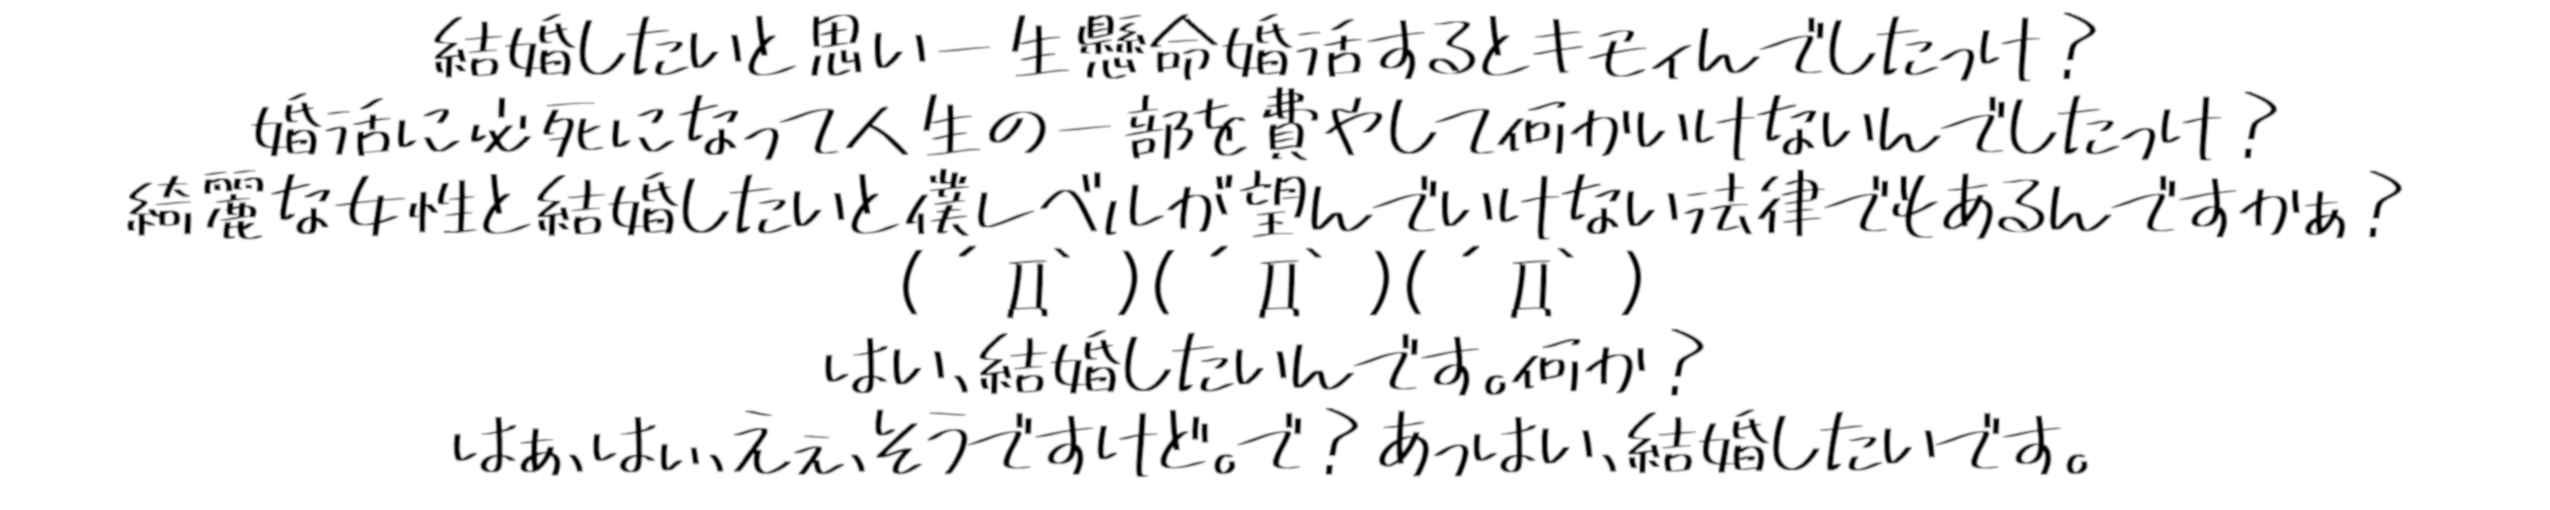 結婚したいと思い一生懸命婚活するとキモィんでしたっけ？
婚活に必死になって人生の一部を費やして何かいけないんでしたっけ？
綺麗な女性と結婚したいと僕レベルが望んでいけない法律でもあるんですかぁ？
(´Д｀)(´Д｀)(´Д｀)
はい、結婚したいんです。何か？
はぁ、はぃ、えぇ、そうですけど。で？あっはい、結婚したいです。